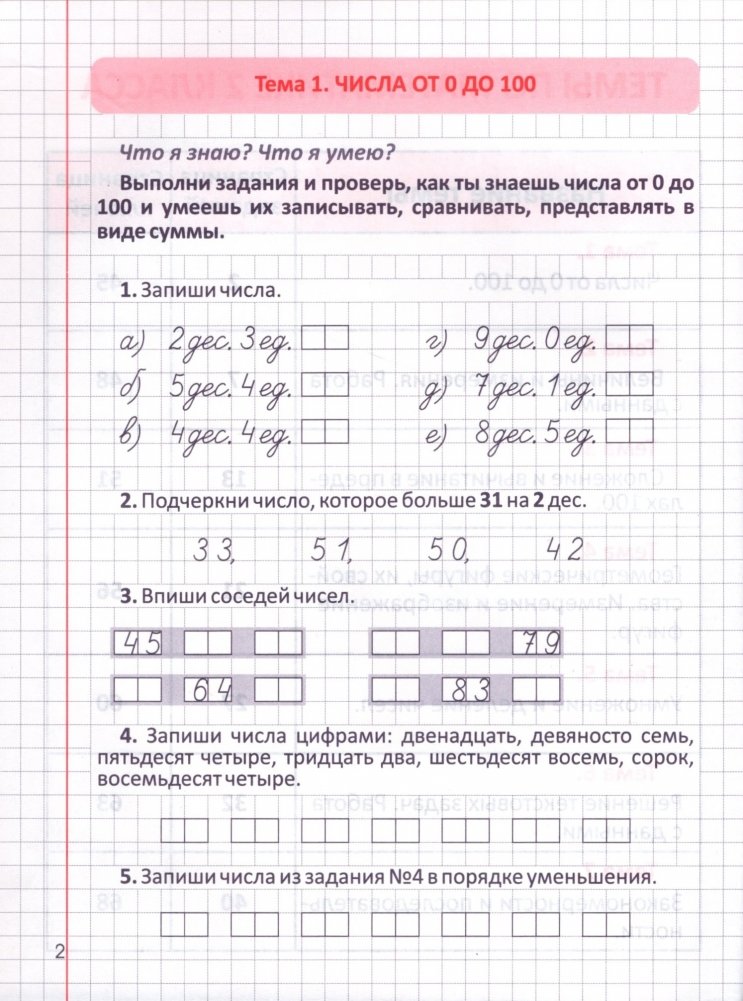 Тема 1. ЧИСЛА ОТ 0 ДО 100
Что я знаю? Что я умею?
Выполни задания и проверь, как ты знаешь числа от 0 до
100 и умеешь их записывать, сравнивать, представлять в
виде суммы.
1. Запиши числа.
а) 2 дес. 3 ед. г) 9 дес. 0 ед.
б) 5 дес. 4 ед. д) 7 дес. 1 ед.
в) 4 дес. 4 ед. е) 8 дес. 5 ед.
2. Подчеркни число, которое больше 31 на 2 дес.
33, 51, 50, 42
3. Впиши соседей чисел.
45 79
64 83
4. Запиши числа цифрами: двенадцать, девяносто семь,
пятьдесят четыре, тридцать два, шестьдесят восемь, сорок,
восемьдесят четыре.
5. Запиши числа из задания №4 в порядке уменьшения.
2